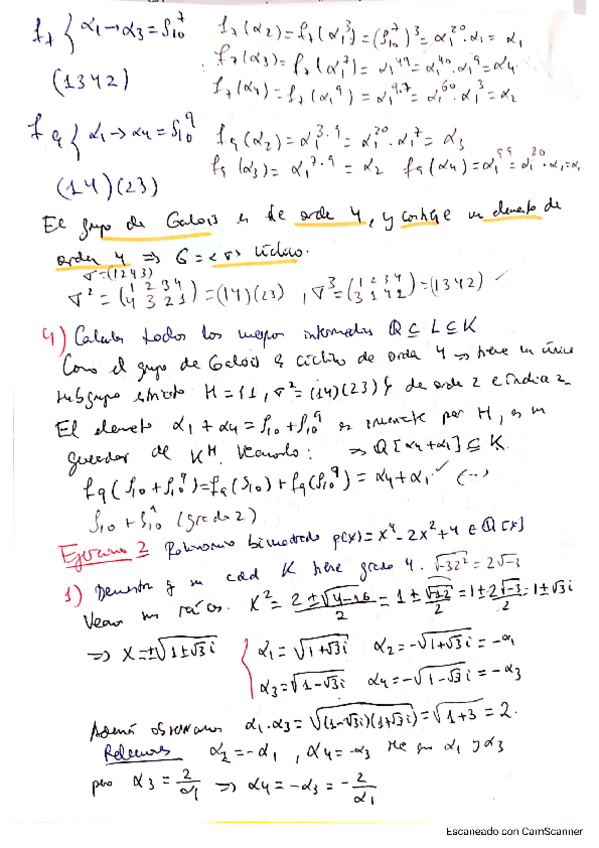 f₇ { α₁ → α₃ = ρ₁₀⁷   f₇(α₂) = f₇(α₁³) = (ρ₁₀⁷)³ = α₁²⁰·α₁ = α₁
(1342)   f₇(α₃) = f₇(α₁⁷) = α₁⁴⁹ = α₁⁴⁰·α₁⁹ = α₄
f₇(α₄) = f₇(α₁⁹) = α₁⁹·⁷ = α₁⁶⁰·α₁³ = α₂
f₉ { α₁ → α₄ = ρ₁₀⁹   f₉(α₂) = α₁³·⁹ = α₁²⁰·α₁⁷ = α₃
(14)(23)   f₉(α₃) = α₁⁷·⁹ = α₂   f₉(α₄) = α₁⁹⁹ = α₁²⁰·α₁ = α₁
El grupo de Galois es de orden 4, y contiene un elemento de
orden 4 ⇒ G = <σ> cíclico.
σ = (1243)
σ² = (1 2 3 4 / 4 3 2 1) = (14)(23) , σ³ = (1 2 3 4 / 3 1 4 2) = (1342) ✓
4) Calcula todos los cuerpos intermedios Q ⊆ L ⊆ K
Como el grupo de Galois es cíclico de orden 4 → tiene un único
subgrupo estricto H = {1, σ² = (14)(23)} de orden 2 e índice 2
El elemento α₁ + α₄ = ρ₁₀ + ρ₁₀⁹ es invariante por H, es un
generador de K^H. Veamoslo: ⇒ Q[α₄+α₁] ⊆ K.
f₉(ρ₁₀ + ρ₁₀⁹) = f₉(ρ₁₀) + f₉(ρ₁₀⁹) = α₄ + α₁ ✓ (...)
ρ₁₀ + ρ₁₀⁹ (grado 2)
Ejercicio 2 Polinomio bicuadrado p(x) = x⁴ - 2x² + 4 ∈ Q[x]
1) Demuestra q su cdd K tiene grado 4. √-3·2² = 2√-3
Veamos sus raíces. x² = (2 ± √4-16)/2 = 1 ± √-12/2 = 1 ± 2√-3/2 = 1 ± √3 i
⇒ x = ±√(1±√3 i)   { α₁ = √(1+√3 i)   α₂ = -√(1+√3 i) = -α₁
α₃ = √(1-√3 i)   α₄ = -√(1-√3 i) = -α₃
Además observamos α₁·α₃ = √((1-√3 i)(1+√3 i)) = √(1+3) = 2.
Relaciones α₂ = -α₁ , α₄ = -α₃ α₁ y α₃
pero α₃ = 2/α₁ ⇒ α₄ = -α₃ = -2/α₁
Escaneado con CamScanner